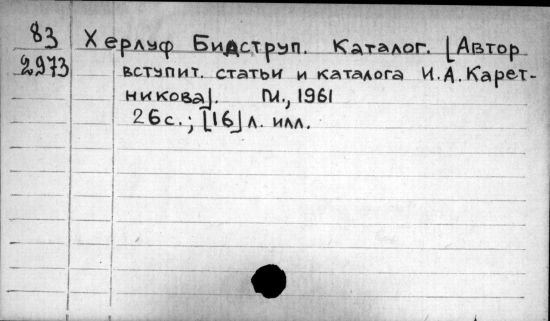 83 Херлуф Бидструп. Каталог. [Автор
2973 вступит. статьи и каталога И.А.Карет-
никова]. М., 1961
26с.; [16] л. илл.